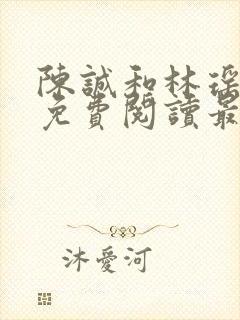 陳誠和林瑤
免費閱讀最
沐愛河